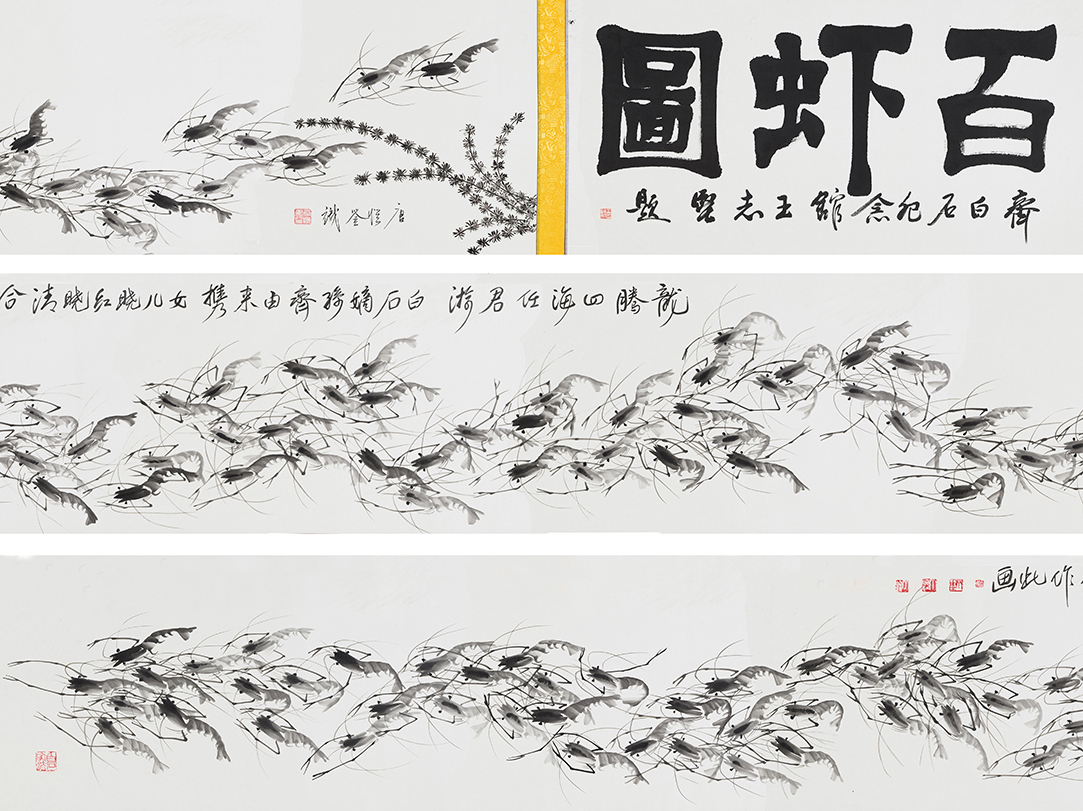 百虾圖
齊白石纪念館王志堅題
識
龍騰四海任君游 白石嫡孫齊由来携女儿晓红晓清合
作此画